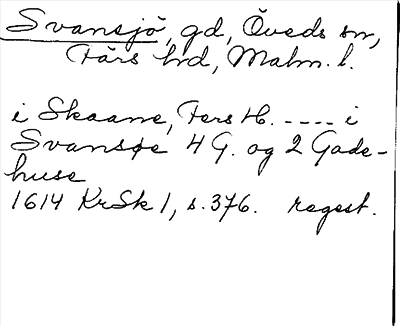 Svansjö, gd, Öveds sn,
Färs hrd, Malm. l.
i Skaane, Fers H. ---- i
Svansøe 4 G. og 2 Gade-
huse
1614 KrSk 1, s. 376. regest.